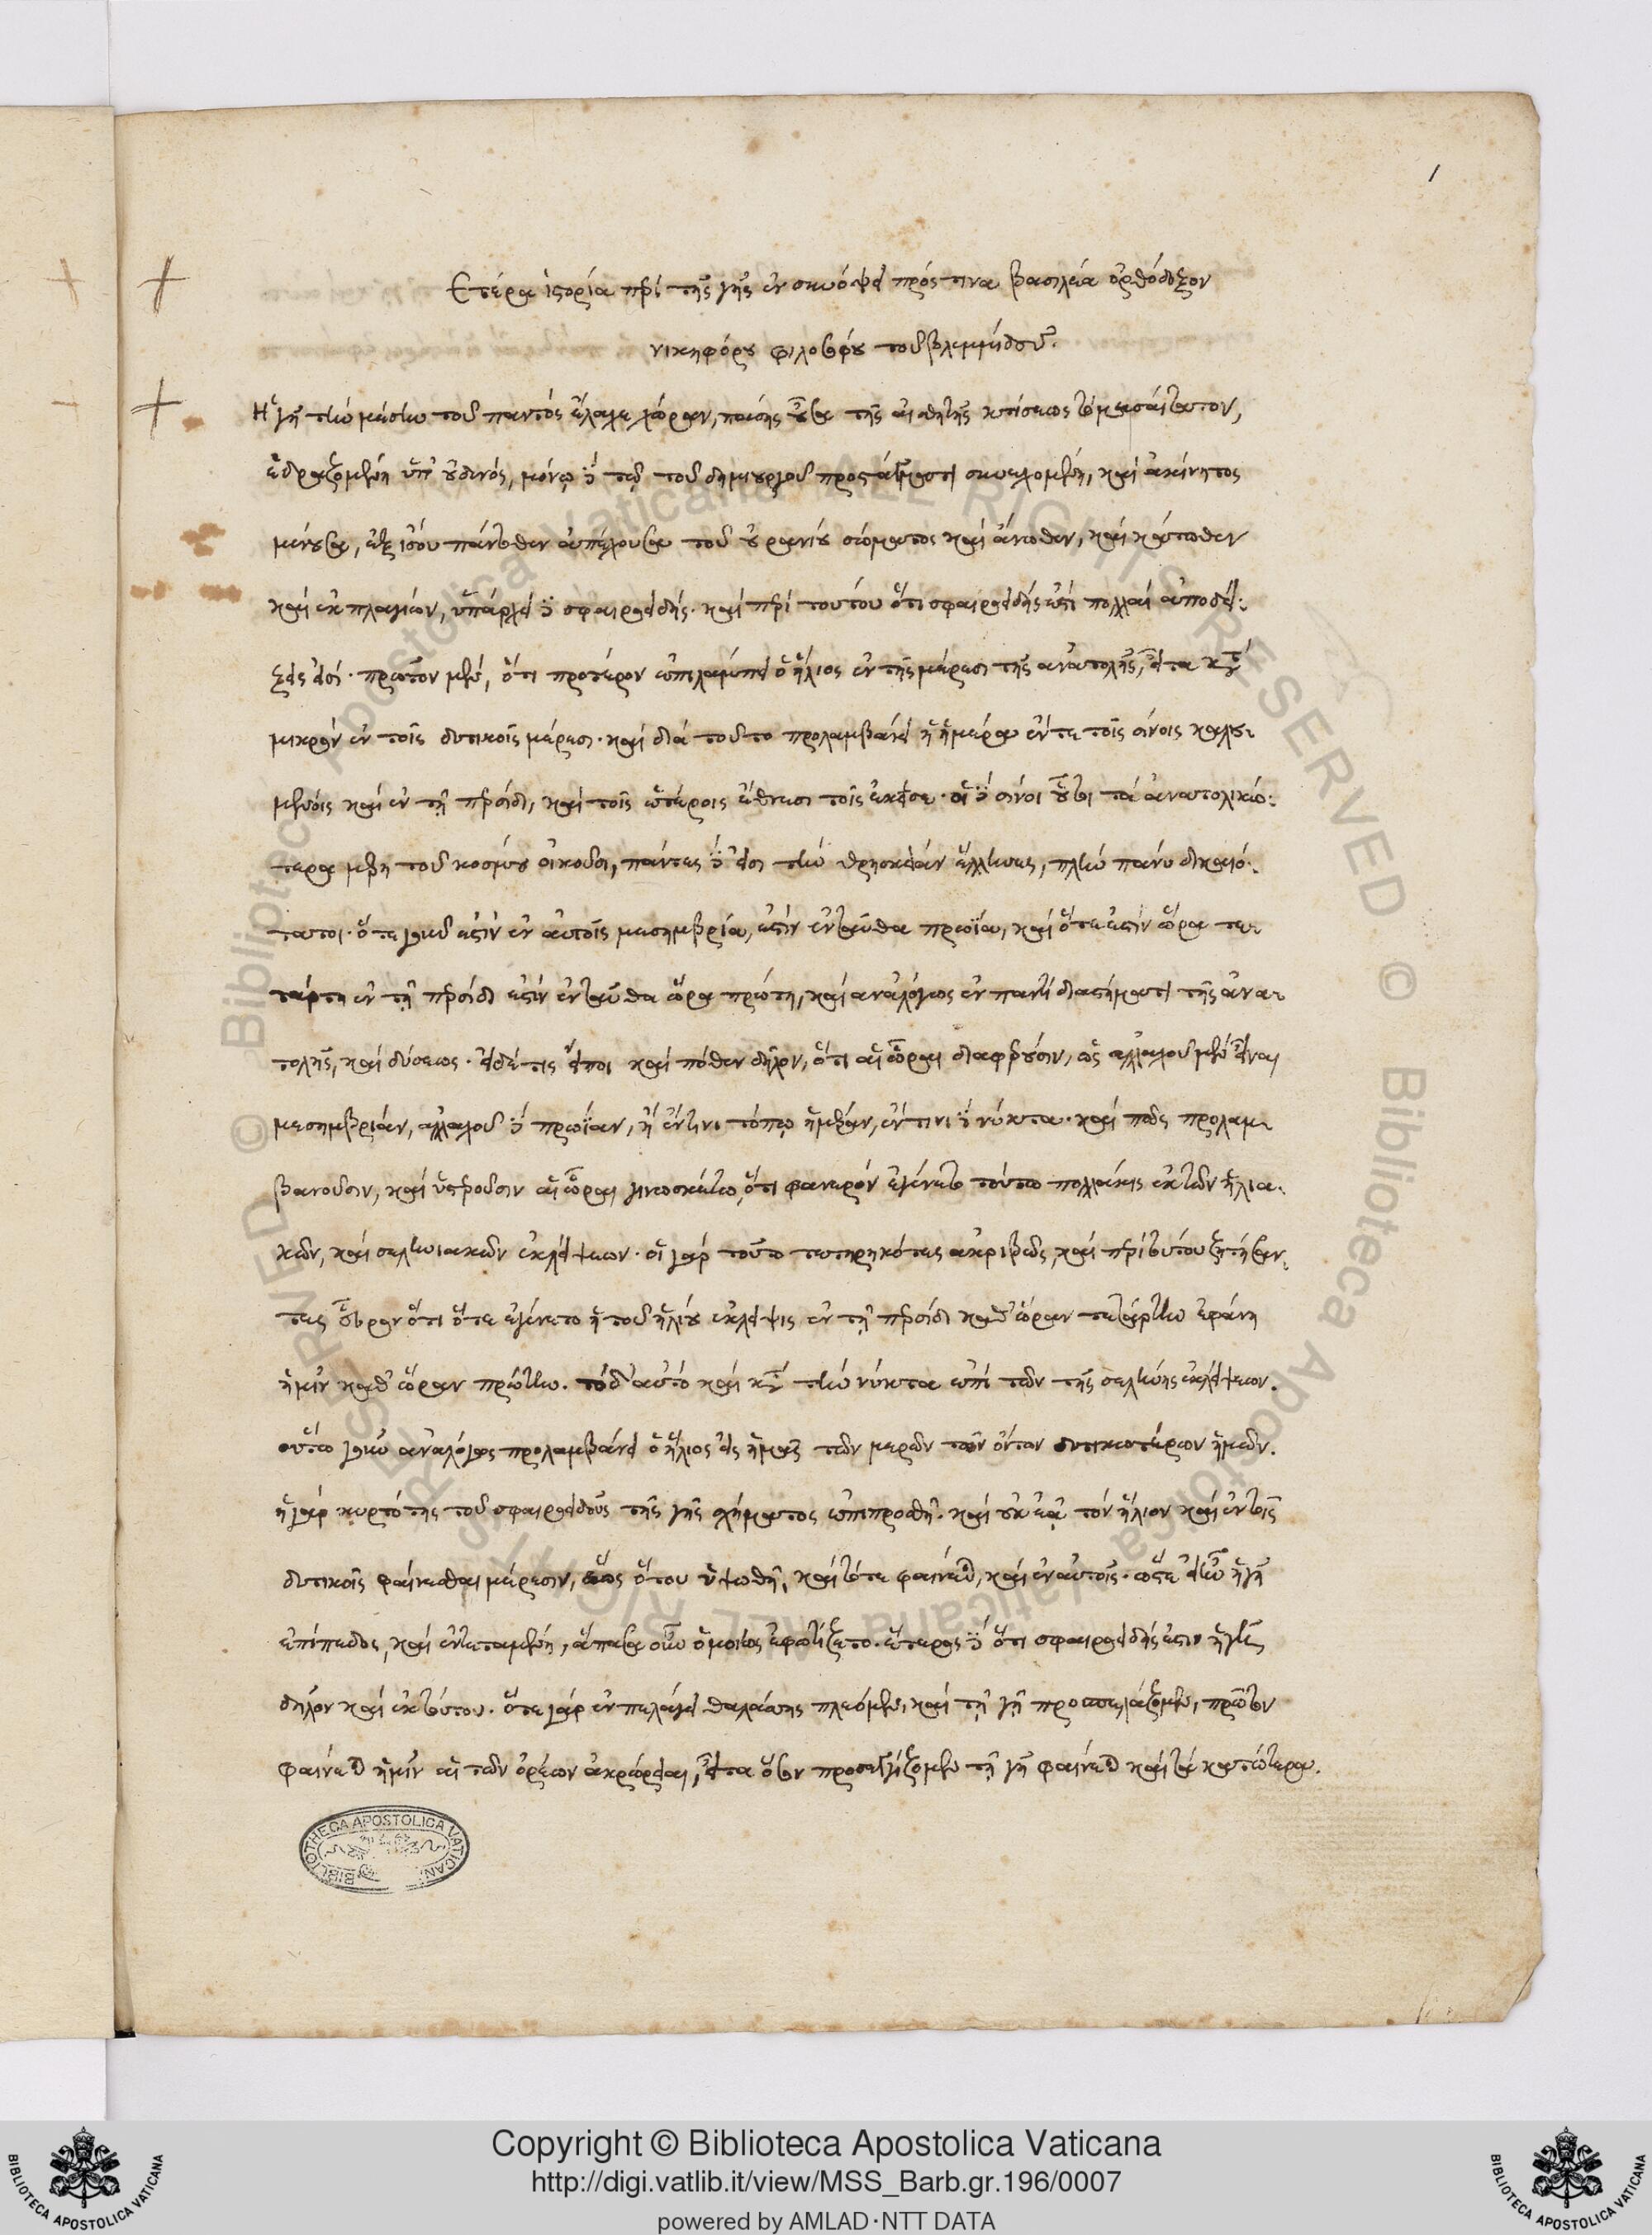 1
Ἑτέρα ἱστορία περὶ τῆς γῆς ἐν συνόψει πρός τινα βασιλέα ὀρθόδοξον
νικηφόρου φιλοσόφου τοῦ βλεμμίδου.
Ἡ γῆ τὴν μέσην τοῦ παντὸς ἔλαχε χώραν, πάσης οὖσα τῆς αἰσθητῆς κτίσεως τὸ μεσαίτατον,
ἑδραζομένη ὑπ' οὐδενός, μόνῳ δὲ τῷ τοῦ δημιουργοῦ προστάγματι συνεχομένη, καὶ ἀκίνητος
μένουσα, ἐξ ἴσου πάντοθεν ἀπέχουσα τοῦ οὐρανίου σώματος καὶ ἄνωθεν, καὶ κάτωθεν
καὶ ἐκ πλαγίων, ὑπάρχει δὲ σφαιροειδής. καὶ περὶ τούτου ὅτι σφαιροειδής ἐστι πολλαὶ ἀποδεί-
ξεις εἰσί. πρῶτον μέν, ὅτι πρότερον ἐπιλάμπει ὁ ἥλιος ἐν τοῖς μέρεσι τῆς ἀνατολῆς, εἶτα κατὰ
μικρὸν ἐν τοῖς δυτικοῖς μέρεσι. καὶ διὰ τοῦτο προλαμβάνει ἡ ἡμέρα ἔν τε τοῖς σίνοις καλου-
μένοις καὶ ἐν τῇ περσίδι, καὶ τοῖς ἑτέροις ἔθνεσι τοῖς ἐκεῖσε. οἱ δὲ σίνοι οὗτοι τὰ ἀνατολικώ-
τερα μέρη τοῦ κόσμου οἰκοῦσι, πάντες δέ εἰσι τὴν θρησκείαν ἕλληνες, πλὴν πάνυ δικαιό-
τατοι. ὅτε γοῦν ἐστὶν ἐν αὐτοῖς μεσημβρία, ἐστὶν ἐνταῦθα πρωΐα, καὶ ὅτε ἐστὶν ὥρα τε-
τάρτη ἐν τῇ περσίδι ἐστὶν ἐνταῦθα ὥρα πρώτη, καὶ ἀναλόγως ἐν παντὶ διαστήματι τῆς ἀνα-
τολῆς, καὶ δύσεως. εἰ δέ τις εἴποι καὶ πόθεν δῆλον, ὅτι αἱ ὧραι διαφέρουσιν, ὡς ἀλλαχοῦ μὲν εἶναι
μεσημβρίαν, ἀλλαχοῦ δὲ πρωΐαν, ἢ ἔν τινι τόπῳ ἡμέραν, ἔν τινι δὲ νύκτα. καὶ πῶς προλαμ-
βάνουσιν, καὶ ὑστεροῦσιν αἱ ὧραι γινωσκέτω, ὅτι φανερὸν ἐγένετο τοῦτο πολλάκις ἐκ τῶν ἡλια-
κῶν, καὶ σεληνιακῶν ἐκλείψεων. οἱ γὰρ τοῦτο τετηρηκότες ἀκριβῶς, καὶ περὶ τούτου ζητήσαν-
τες εὗρον ὅτι ὅτε ἐγένετο ἡ τοῦ ἡλίου ἔκλειψις ἐν τῇ περσίδι καθ' ὥραν τετάρτην ἐφάνη
ἡμῖν καθ' ὥραν πρώτην. τὸ δ' αὐτὸ καὶ κατὰ τὴν νύκτα ἐπὶ τῶν τῆς σελήνης ἐκλείψεων.
οὕτω γοῦν ἀναλόγως προλαμβάνει ὁ ἥλιος εἰς ἡμᾶς τῶν μερῶν τῶν ὄντων δυτικωτέρων ἡμῶν.
ἡ γὰρ κυρτότης τοῦ σφαιροειδοῦς τῆς γῆς σχήματος ἐπιπροσθεῖ. καὶ οὐκ ἐᾷ τὸν ἥλιον καὶ ἐν τοῖς
δυτικοῖς φαίνεσθαι μέρεσιν, ἕως ὅτου ὑψωθῇ, καὶ τότε φαίνεται, καὶ ἐν αὐτοῖς. ὥστε εἰ ἦν ἡ γῆ
ἐπίπεδος, καὶ ἐκτεταμένη, ἅπασα οὖν ὁμοίως ἐφωτίζετο. ἕτερος δὲ ὅτι σφαιροειδής ἐστιν ἡ γῆ
δῆλον καὶ ἐκ τούτου. ὅτε γὰρ ἐν πελάγει θαλάσσης πλέομεν, καὶ τῇ γῇ προσπελάζομεν, πρῶτον
φαίνεται ἡμῖν αἱ τῶν ὀρέων ἀκρώρειαι, εἶτα ὅσον προσεγγίζομεν τῇ γῇ φαίνεται καὶ τὰ κατώτερα.
BIBLIOTHECA APOSTOLICA VATICANA
© Biblioteca Apostolica Vaticana ALL RIGHTS RESERVED
© Biblioteca Apostolica Vaticana ALL RIGHTS RESERVED
Copyright © Biblioteca Apostolica Vaticana
http://digi.vatlib.it/view/MSS_Barb.gr.196/0007
powered by AMLAD·NTT DATA
BIBLIOTECA APOSTOLICA VATICANA
BIBLIOTECA APOSTOLICA VATICANA